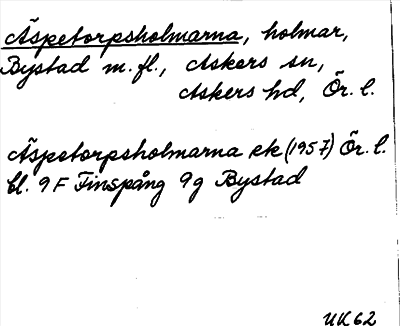 Äspetorpsholmarna, holmar,
Bystad m.fl., Askers sn,
Askers hd, Ör. l.
Äspetorpsholmarna ek (1957) Ör. l.
bl. 9 F Finspång 9g Bystad
UK 62